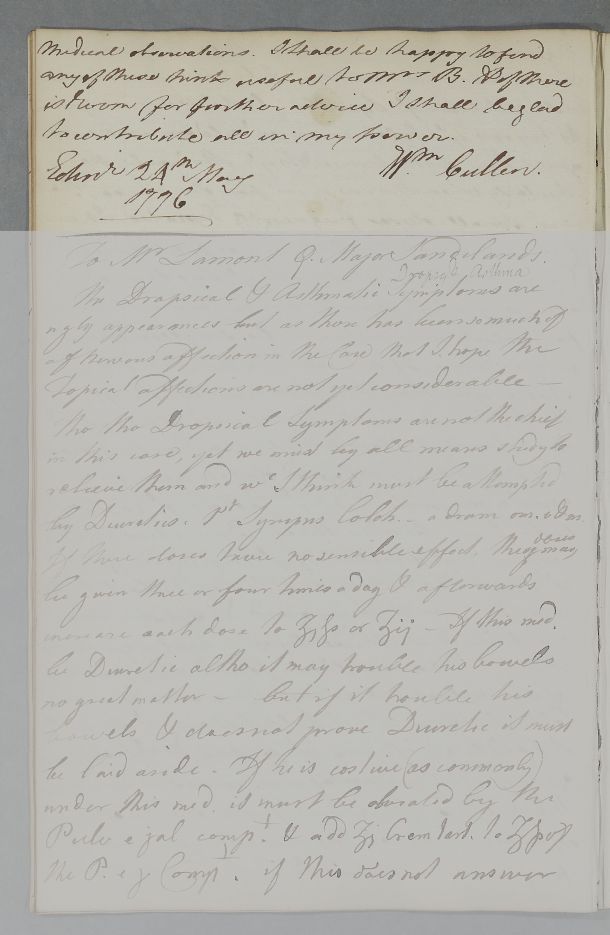 medical observations. I shall be happy to find
any of these hints useful to Mrs B. & if there
is room for further advice I shall be glad
to contribute all in my power.
Edinr 24th May Wm Cullen.
1776
To Mr Lamont Q. Major Sandilands.
Dropsy & Asthma
The Dropsical & Asthmatic Symptoms are
ugly appearances but as there has been so much of
a nervous affection in the Case that I hope the
Topical affections are not yet considerable —
Tho the Dropsical Symptoms are not the chief
in this case, yet we must by all means study to
relieve them and wc I think must be attempted
by Diuretics. 1st Syrupus Colch. — a dram
If these doses have no sensible effect, the doses may
be given thee or four times a day & afterwards
increase each dose to ʒjſs or ʒij — If this med.
be Diuretic altho it may trouble his bowels
no great matter — but if it trouble his
bowels & does not prove Diuretic it must
be laid aside. If he is costive (as commonly)
under this med. it must be obviated by the
Pulv e jal compt. & add ʒj Crem tart. to of
the P. e j Compt. if this does not answer